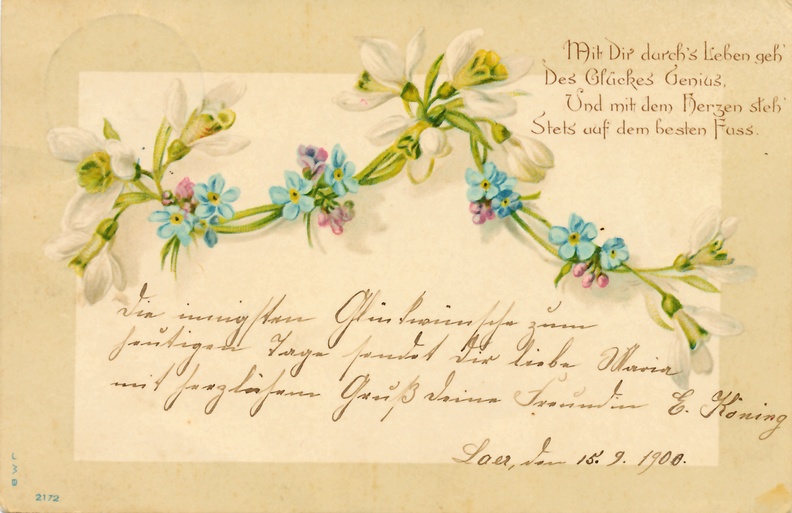 Mit Dir durch's Leben geh'
Des Glückes Genius,
Und mit dem Herzen steh'
Stets auf dem besten Fuss.
Die innigsten Glückwünsche zum
heutigen Tage sendet dir liebe Maria
mit herzlichem Gruß Deine Freundin E. Köning
Laer, den 15. 9. 1900.
L
W
B
2172